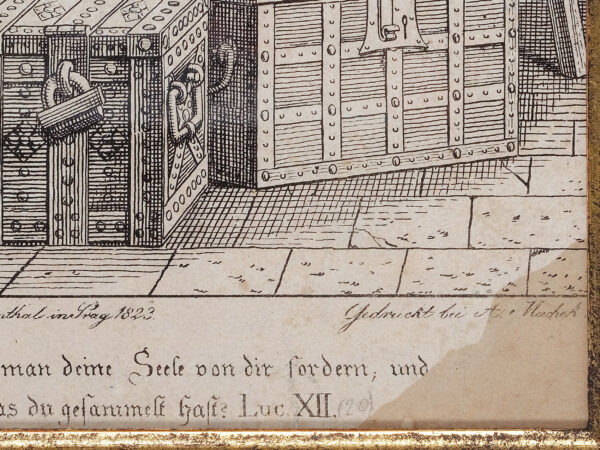 nthal in Prag 1823
Gedruckt bei A.
man deine Seele von dir fordern, und
as du gesammelt hast? Luc. XII. (20)